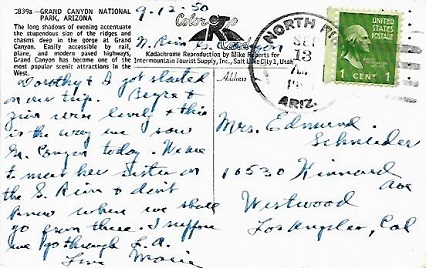 3839A—GRAND CANYON NATIONAL
PARK, ARIZONA
The long shadows of evening accentuate
the stupendous size of the ridges and
chasms deep in the gorge at Grand
Canyon. Easily accessible by rail,
plane, and modern paved highways,
Grand Canyon has become one of the
most popular scenic attractions in the
West.
9.12.50
Color
K
N. Rim G. Canyon
Kodachrome Reproduction by Mike Roberts for
Intermountain Tourist Supply, Inc., Salt Lake City 1, Utah
Address
NORTH RIM
SEP
13
ARIZ.
1 CENT 1
Dorothy & I got started
on our trip.
this
is the way we saw
G. Canyon today. We are
to meet her sister on
the S. Rim & don't
know where we shall
go from there. I suppose
we go through L.A.
Love Marie
Mrs. Edmund
Schrader
10530 Kinnard
Ave
Westwood
Los Angeles, Cal